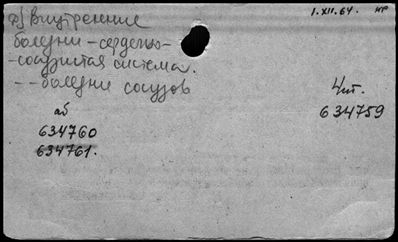 д) Внутренние
1.XII.64. НР
болезни - сердечно-
- сосудистая система.
- - болезни сосудов
аб
634760
634761.
Чит.
634759